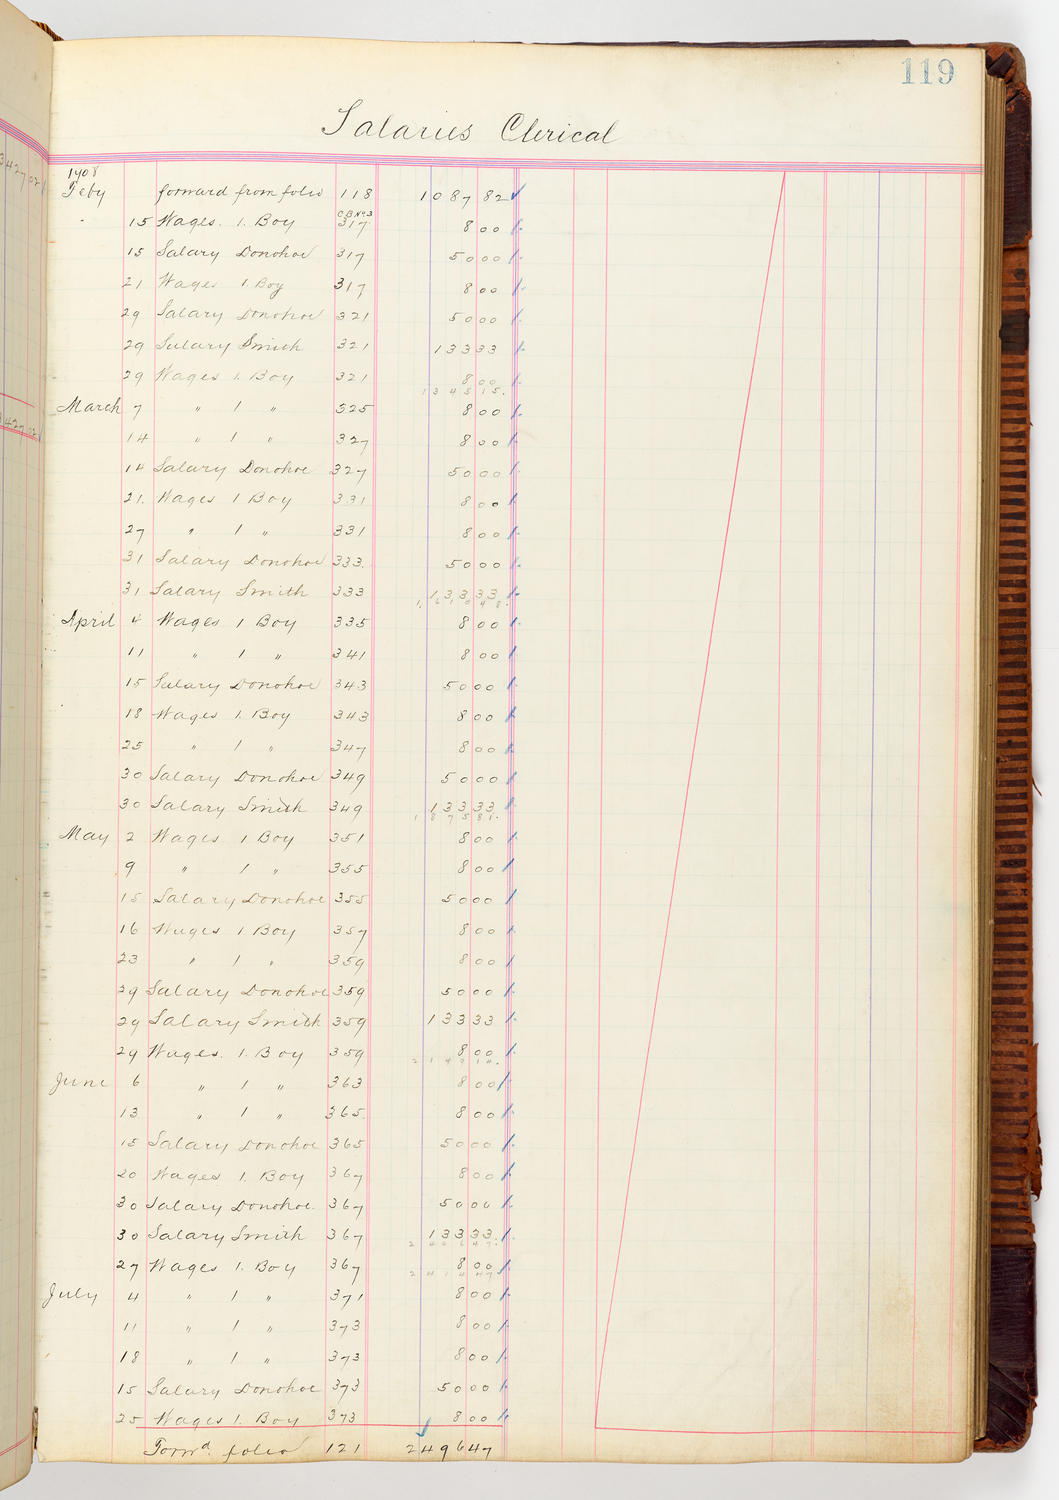 119
Salaries Clerical
1908
Feby forward from folio 118 1087 82 ✓
C.B No 3
15 Wages. 1. Boy 317. 8 00
15 Salary Donohoe 317 50 00
21 Wages 1. Boy 317 8 00
29 Salary Donohoe 321 50 00
29 Salary Smith 321 133 33
29 Wages 1. Boy 321 8 00
1345 15.
March 7 " 1 " 325 8 00
14 " 1 " 327 8 00
14 Salary Donohoe 327 50 00
21. Wages 1 Boy 331 8 00
27 " 1 " 331 8 00
31 Salary Donohoe 333. 50 00
31 Salary Smith 333 133 33
1610 48.
April 4 Wages 1 Boy 335 8 00
11 " 1 " 341 8 00
15 Salary Donohoe 343 50 00
18 Wages 1. Boy 343 8 00
25 " 1 " 347 8 00
30 Salary Donohoe 349 50 00
30 Salary Smith 349 133 33
1875 81.
May 2 Wages 1 Boy 351 8 00
9 " 1 " 355 8 00
15 Salary Donohoe 355 50 00
16 Wages 1 Boy 357 8 00
23 " 1 " 359 8 00
29 Salary Donohoe 359 50 00
29 Salary Smith 359 133 33
29 Wages. 1. Boy 359 8 00
2149 14.
June 6 " 1 " 363 8 00
13 " 1 " 365. 8 00
15 Salary Donohoe 365 50 00
20 Wages 1. Boy 367 8 00
30 Salary Donohoe. 367 50 00
30 Salary Smith 367 133 33
2406 47.
27 Wages 1. Boy 367 8 00
2414 47
July 4 " 1 " 371 8 00
11 " 1 " 373 8 00
18 " 1 " 373 8 00
15 Salary Donohoe 373 50 00
25 Wages 1. Boy 373 8 00
Forwd folio 121 2496 47